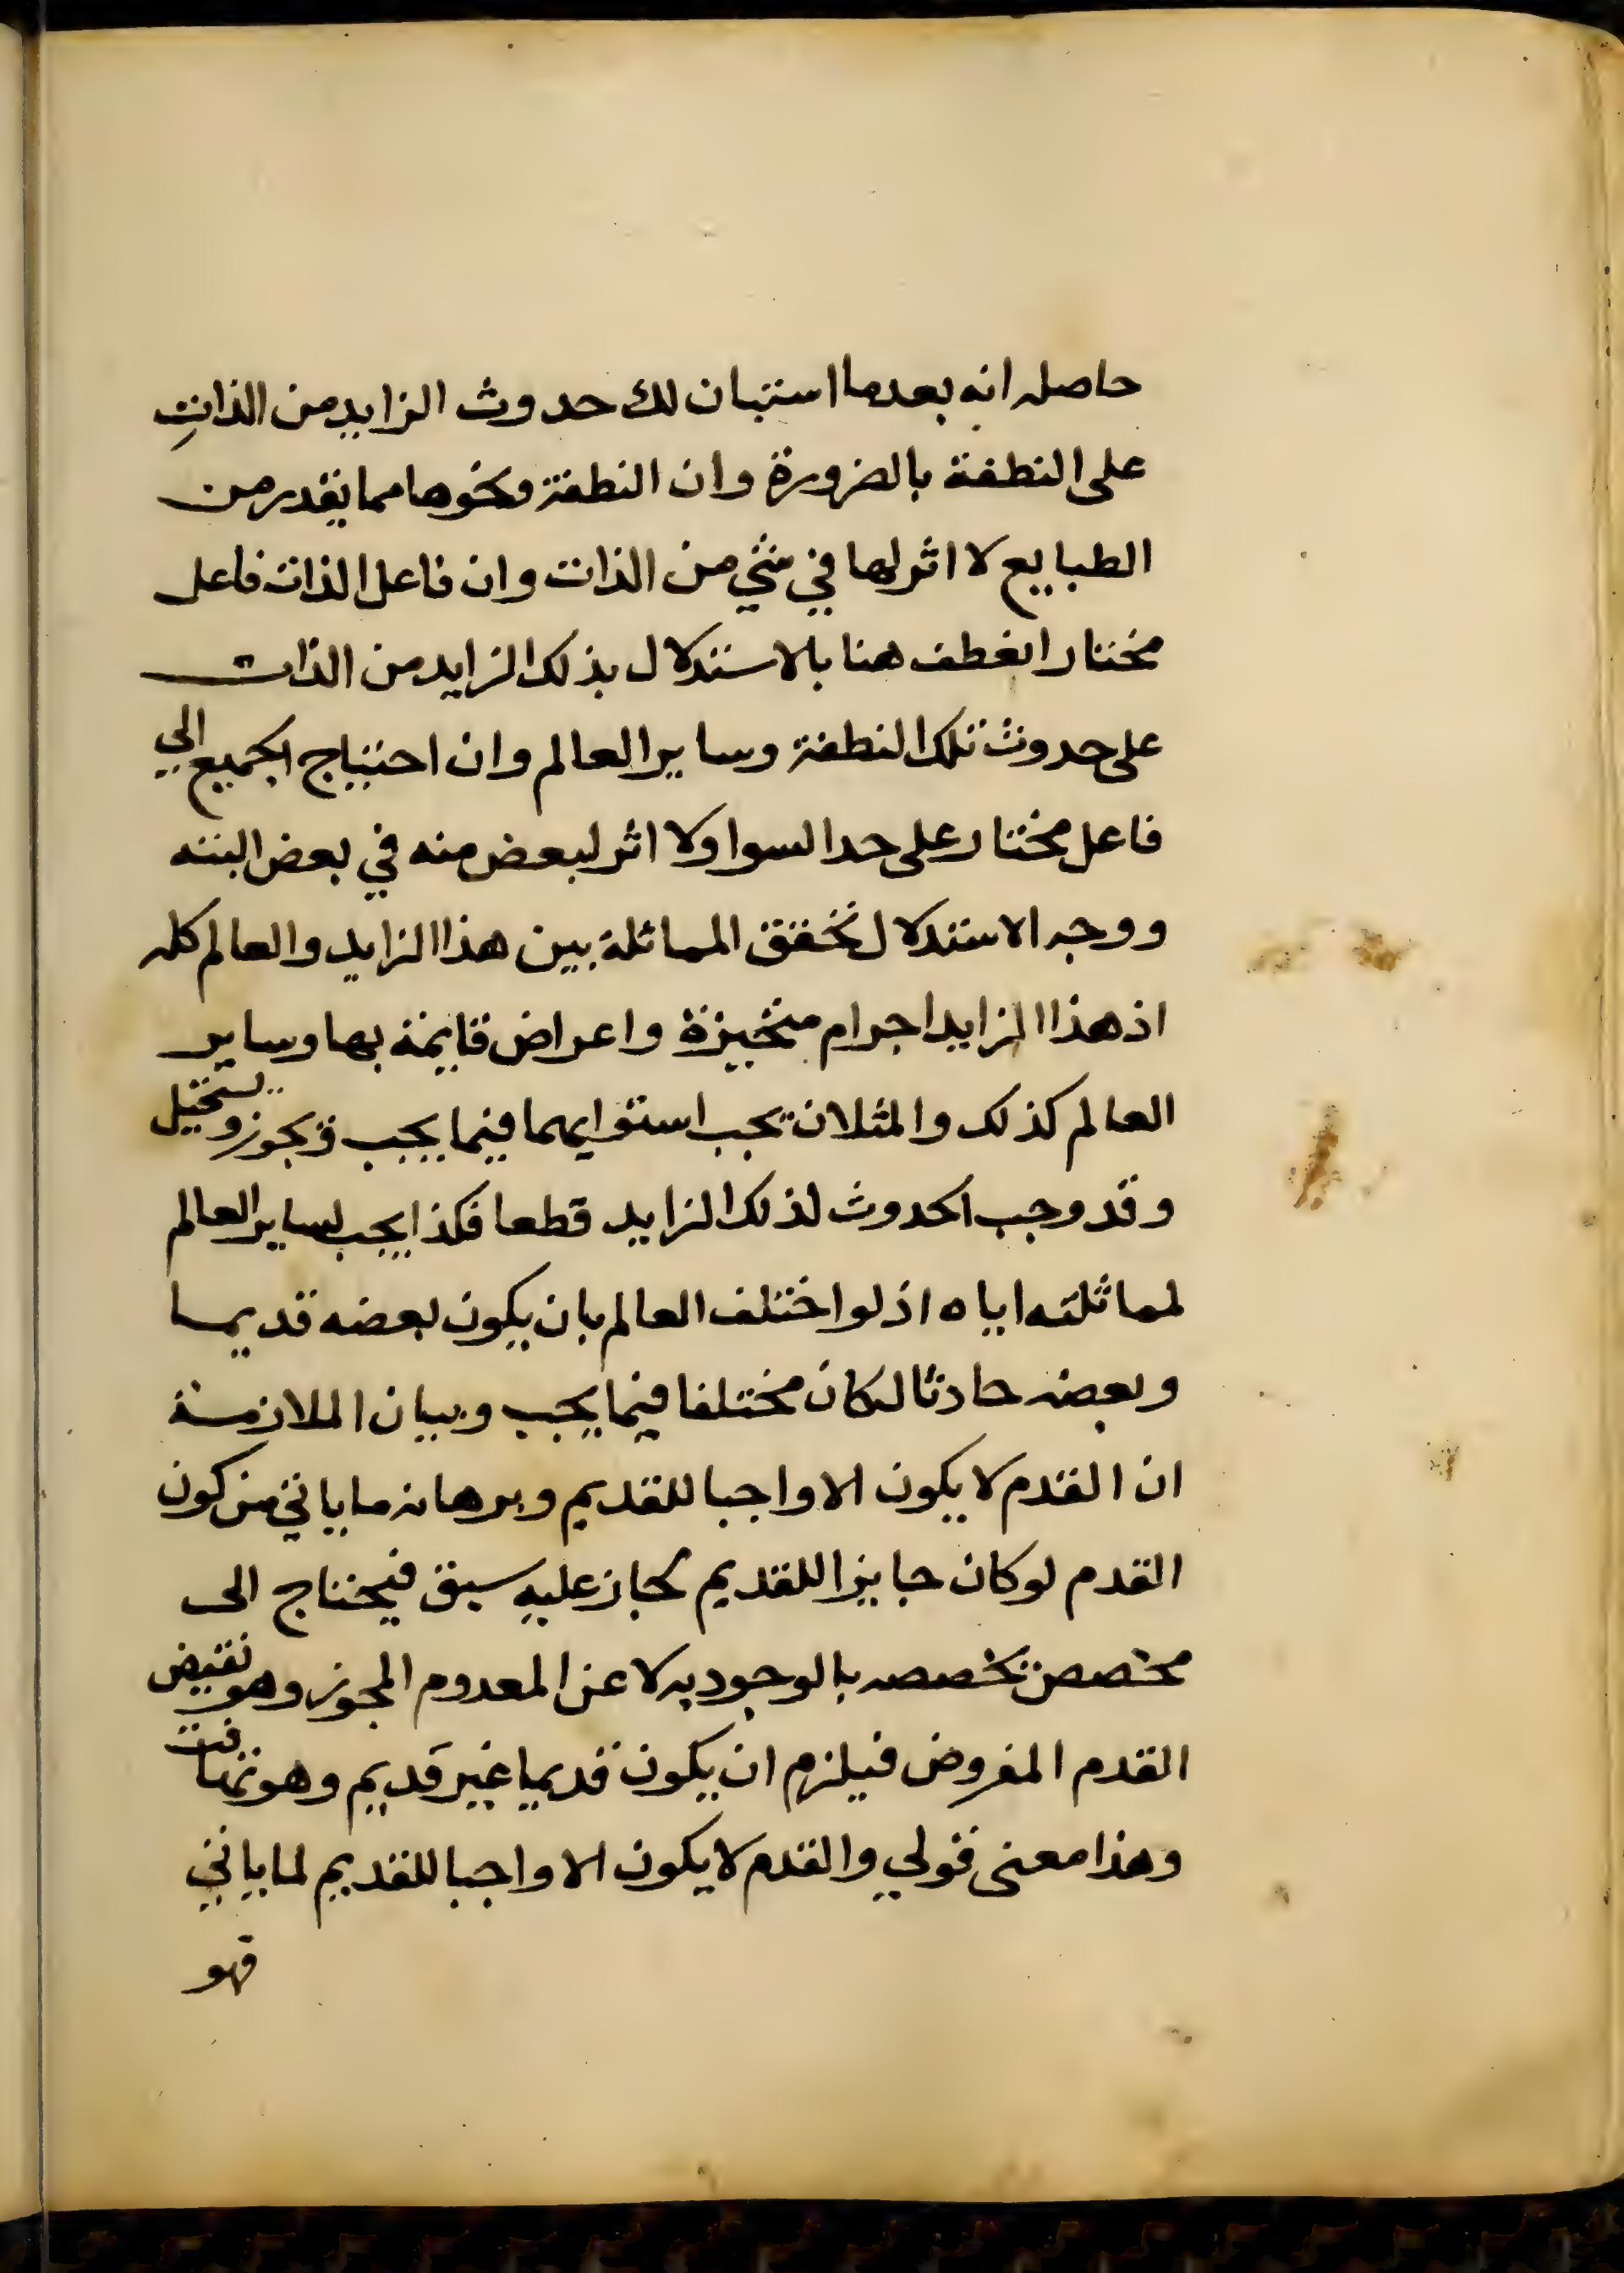 حاصله انه بعدما استبان لك حدوث الزايد من الذات
على النطفة بالضرورة وان النطفة ونحوها مما يقدر من
الطبايع لا اثر لها في شئ من الذات وان فاعل الذات فاعل
مختار انعطف هنا بالاستدلال بذلك الزايد من الذات
على حدوث تلك النطفة وساير العالم وان احتياج الجميع الي
فاعل مختار على حد السوا ولا اثر لبعض منه في بعض البته
ووجه الاستدلال تحقق المماثلة بين هذا الزايد والعالم كله
اذ هذا الزايد اجرام متحيزة واعراض قايمة بها وساير
العالم كذلك والمثلان يجب استوايهما فيما يجب ويجوز ويستحيل
وقد وجب الحدوث لذلك الزايد قطعا فكذا يجب لساير العالم
لمماثلته اياه اذ لو اختلف العالم بان يكون بعضه قديما
وبعضه حادثا لكان مختلفا فيما يجب وبيان الملازمة
ان القدم لا يكون الا واجبا للقديم وبرهانه ما ياتي من كون
القدم لو كان جايزا للقديم لجاز عليه سبق فيحتاج الى
مخصص تخصصه بالوجود به لا عن المعدوم المجوز وهو نقيض
القدم المفروض فيلزم ان يكون قديما غير قديم وهو تهافت
وهذا معنى قولي والقدم لا يكون الا واجبا للقديم لما ياتي
فهو